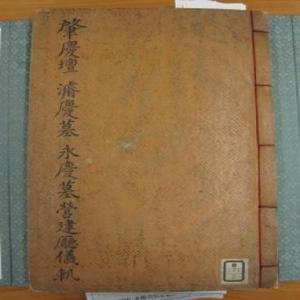 肇慶壇濬慶墓永慶墓營建廳儀軌